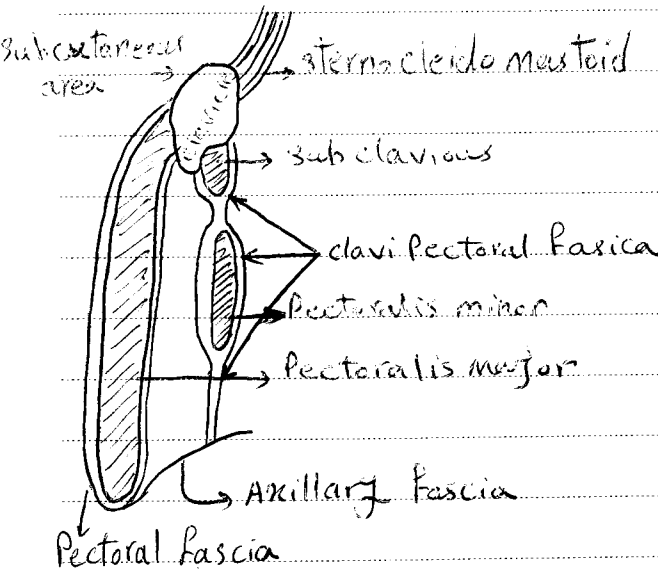 Subcutaneous
area
sterno cleido mastoid
clavicle
sub clavious
clavi Pectoral fasica
Pectoralis minor
Pectoralis major
Axillary fascia
Pectoral fascia